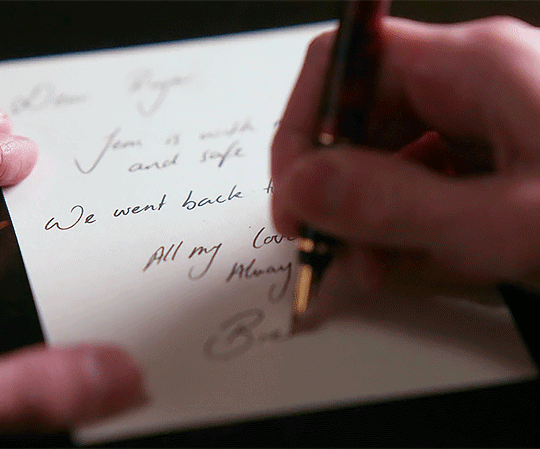 Dear Roger
Jem is with
and safe
We went back t
All my love
Alway
Bre